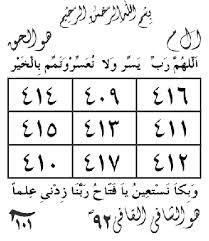 بِسْمِ اللهِ الرَّحْمٰنِ الرَّحِيْمِ
ا ل م هو الحق
اَللّٰهُمَّ رَبِّ يَسِّرْ وَلَا تُعَسِّرْ وَتَمِّمْ بِالْخَيْرِ
٤١٦ ٤٠٩ ٤١٤
٤١١ ٤١٣ ٤١٥
٤١٢ ٤١٧ ٤١٠
وَبِكَا نَسْتَعِيْنُ يَا فَتَّاحُ رَبَّنَا زِدْنِي عِلْماً
هو الشافى القافى ٩٢